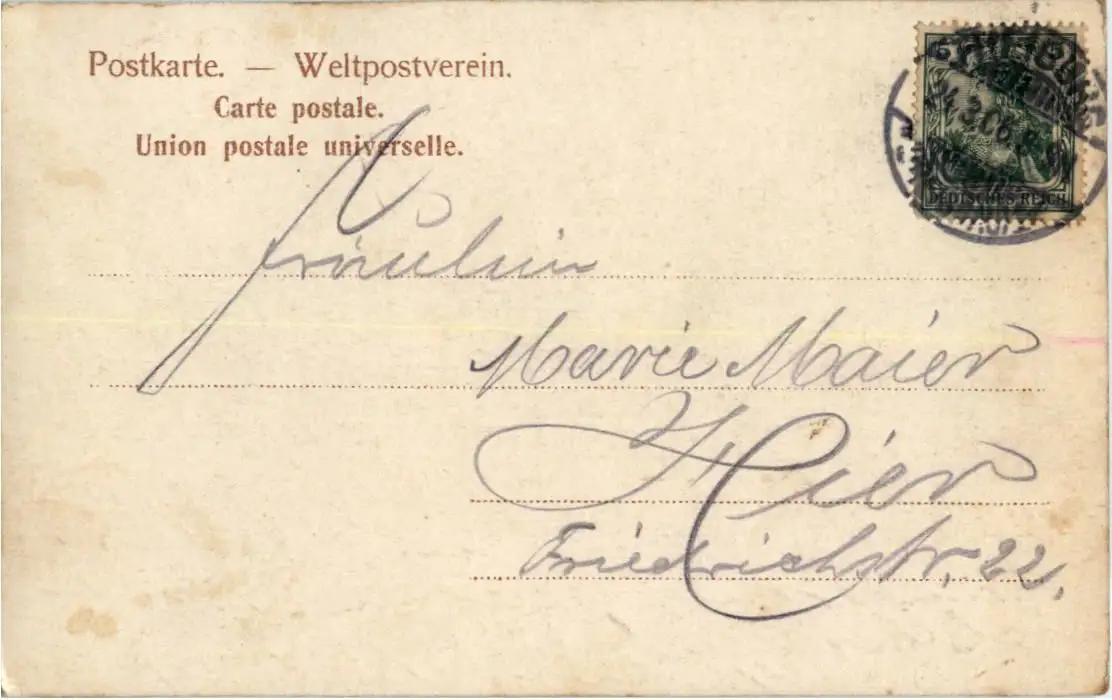 Postkarte. — Weltpostverein.
Carte postale.
Union postale universelle.
5
DEUTSCHES REICH
24.3.06
Fräulein
Marie Maier
Hier
Friedrichstr. 22.